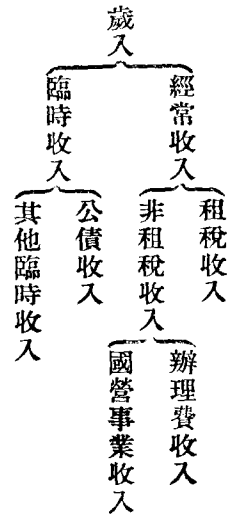 歲入
經常收入
租稅收入
非租稅收入
辦理費收入
國營事業收入
臨時收入
公債收入
其他臨時收入